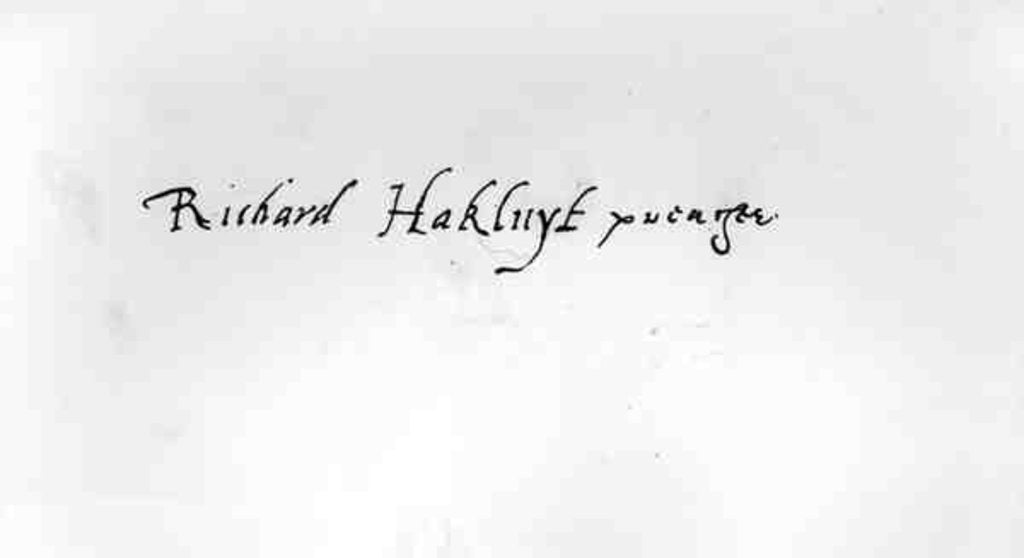 Richard Hakluyt preacher